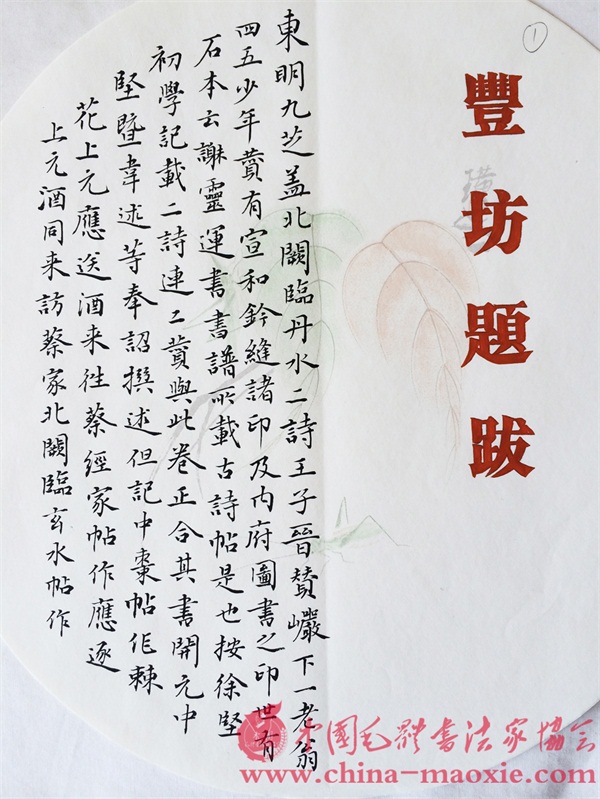 1
豐坊題跋
東明九芝盖北闕臨丹水二詩王子晉贊巗下一老翁
四五少年贊有宣和鈐縫諸印及内府圖書之印世有
石本云謝靈運書書譜所載古詩帖是也按徐堅
初學記載二詩連二贊與此卷正合其書開元中
堅暨韋述等奉詔撰述但記中棗帖作棘
花上元應送酒来徃蔡經家帖作應逐
上元酒同来訪蔡家北闕臨玄水帖作
中國毛體書法家協会
www.china-maoxie.com